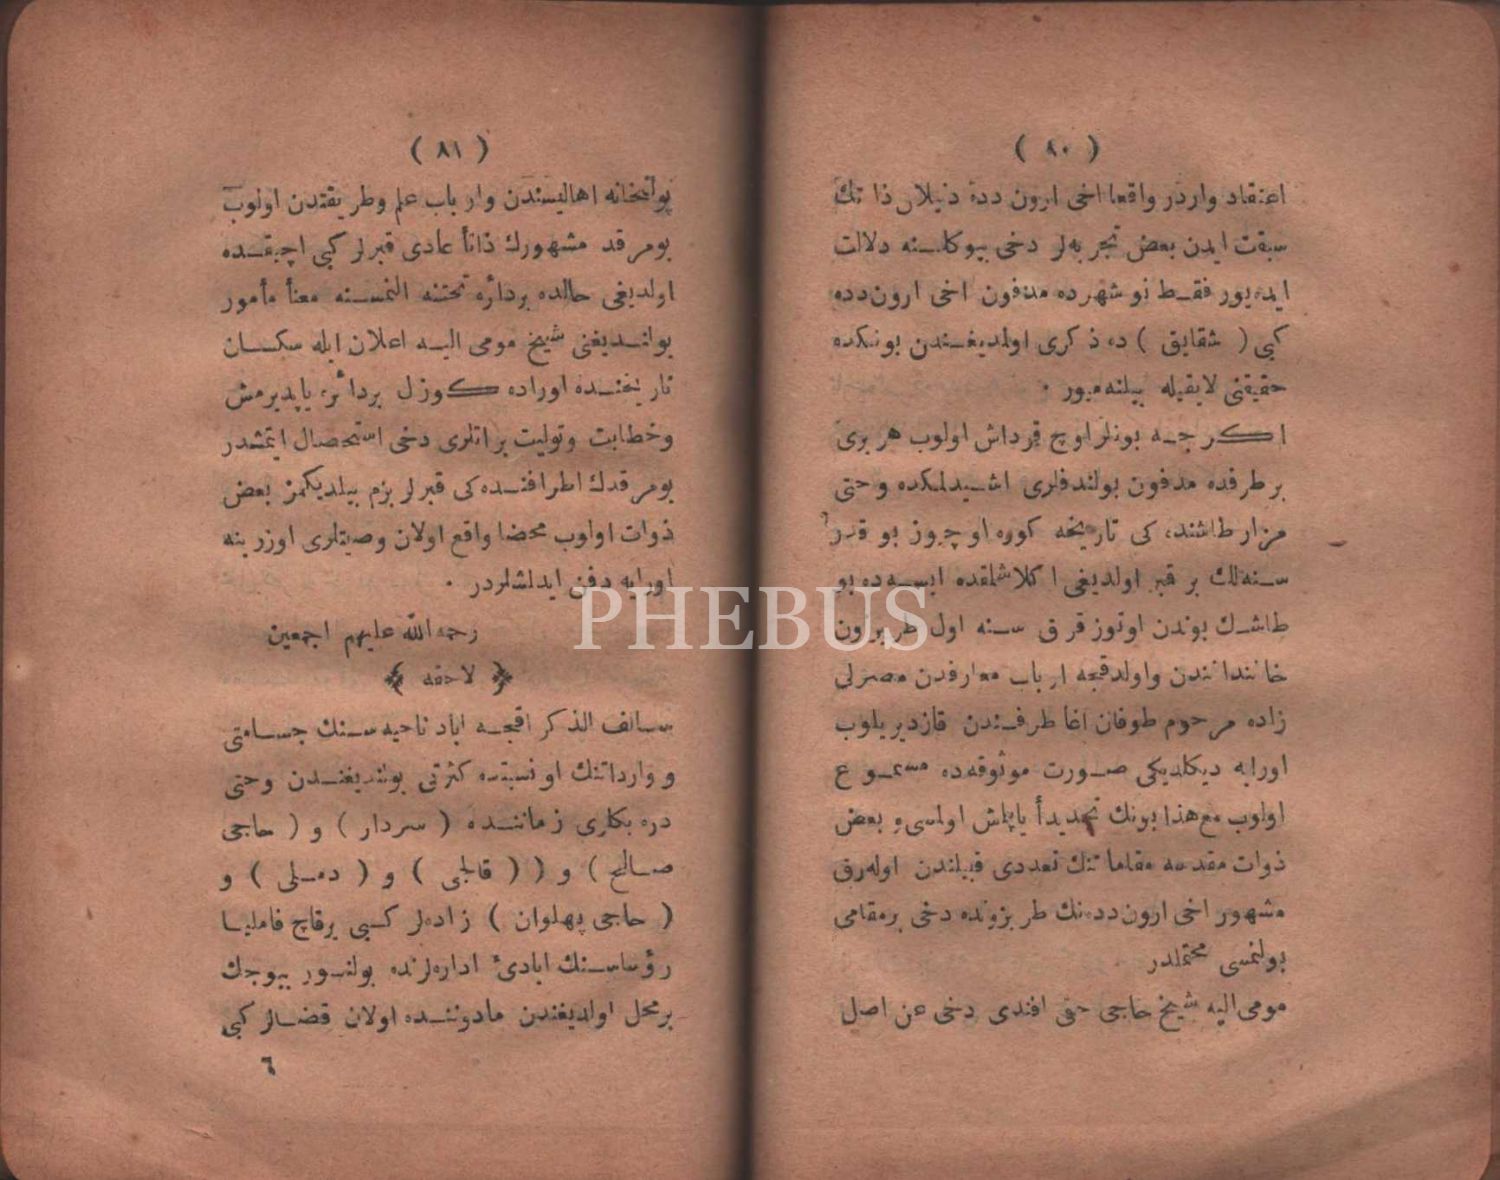 ( ٨٠ )
اعتقاد واردر واقعا اخی ارون دده دنیلان ذاتك
سبقت ایدن بعض تجربه‌لر دخی بیوكلـنه دلالت
ایدیور فقـط بو شهرده مدفون اخی ارون دده
كبی ( شقایق ) ده ذكری اولدیغـندن بونكده
حقیقتی لایقیله بیلنه‌میور .
اكـر جـه بونلر اوچ قرداش اولوب هر بری
بر طرفده مدفون بولندقلری اشـیدلمكده و حتی
مزار طاشنده كی تاریخه كوره اوچیوز بو قدر
سـنه‌لك بر قبر اولدیغی اكلاشلمقده ایسـه‌ده بو
طاشـك بوندن اوتوز قرق سـنه اول طربزون
خانداننـدن و اولدقجه ارباب معارفدن مصرلی
زاده مرحوم طوفان اغا طرفـندن قازدیریلوب
اورایه دیكلدیكی صـورت موثوقه‌ده مسمـوع
اولوب مع هذا بونك تجدیداً یاپلمش اولمسی و بعض
ذوات مقدسه مقاماتنك تعددی قبیلندن اوله‌رق
مشهور اخی ارون دده‌نك طربزونده دخی بر مقامی
بولنمسی محتملدر
مومی الیه شیخ حاجی حقی افندی دخی عن اصل
( ٨١ )
بولتخانه اهالیسندن و ارباب علم و طریقتدن اولوب
بو مرقد مشهورك ذاتاً عادی قبرلر كبی اچیقـده
اولدیغی حالده بردائره تحتنه النمسـنه معناً مأمور
بولنـدیغنی شیخ مومی الیـه اعلان ایله سكسـان
تاریخنـده اوراده كـوزل بردائره یاپدیرمش
و خطابت و تولیت براتلری دخی استحصال ایتمشدر
بو مرقدك اطرافنـده كی قبرلر بزم بیلدیكمز بعض
ذوات اولوب محضا واقع اولان وصیتلری اوزرینه
اورایه دفن ایدلمشلردر .
رحمة الله علیهم اجمعین
﴿ لاحقه ﴾
سـالف الذكر اقچـه اباد ناحیه سـنك جسـامتی
و وارداتنك او نسبتده كثرتی بولندیغـندن و حتی
دره بكلری زماننـده ( سردار ) و ( حاجی
صـالح ) و ( ( قالجی ) و ( دمـلی ) و
( حاجی پهلوان ) زاده‌لر كـبی برقاچ فاملیـا
رؤساسـنك ایادی اداره‌لرنده بولنـور بیوجك
بر محل اولدیغندن مادوننـده اولان قضـالر كبی
٦
PHEBUS